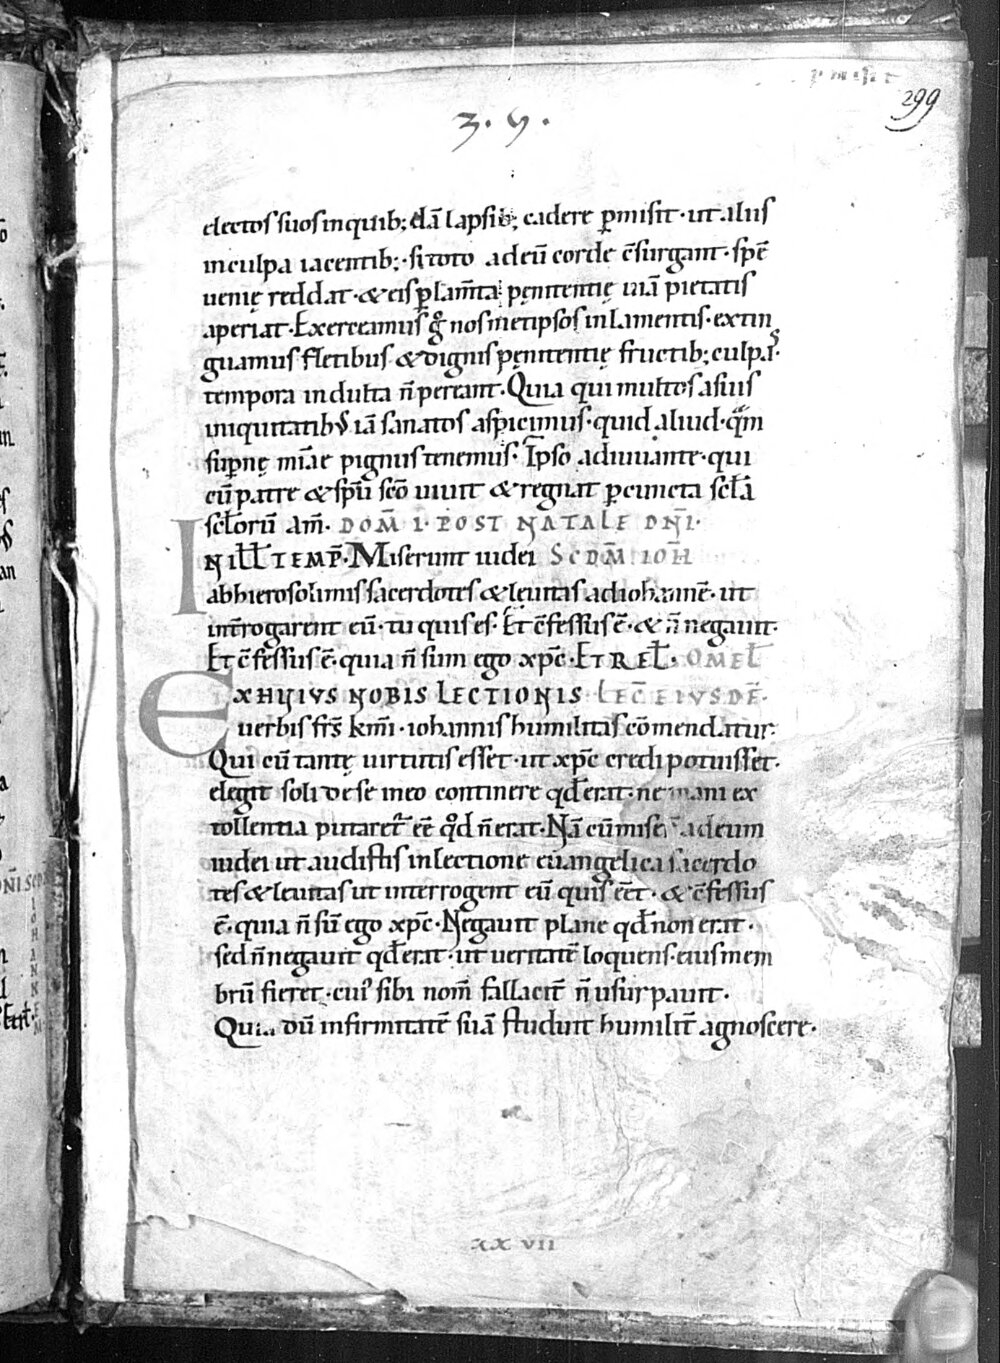 299
3. 9.
electos suos in quib; dā lapsib; cadere ꝑmisit · ut aliis
in culpa iacentib; · si toto ad eū corde c̄surgant · spē
uenię reddat · & eis ꝑ lam̄ta pęnitentię uiā pietatis
aperiat · Exerceamus gͦ nosmetipsos in lamentis · extin
guamus fletibus & dignis pęnitentię fructib; culpas ·
tempora indulta n̄ pereant · Quia qui multos a suis
iniquitatibꝰ iā sanatos aspicimus · quid aliud · qͣm
suꝑnę mīae pignus tenemus · Ipso adiuuante · qui
cū patre & spū scō uiuit & regnat ꝑ cuncta scła
scłorū am̄. DOM̄ I · POST NATALE DN̄I ·
IN ILŁ TEMP̄ · Miserunt iudei SCDM̄ IOH̄
ab hierosolimis sacerdotes & leuitas ad iohannē · ut
int̄rogarent eū · tu quis es · Et c̄fessus ē · & n̄ negauit ·
Et c̄fessus ē · quia n̄ sum ego xp̄c · ET REŁ · OMEŁ
EX HUIUS NOBIS LECTIONIS LEC̄ EIUSDĒ ·
uerbis frs̄ km̄i · iohannis humilitas cōmendatur ·
Qui cū tantę uirtutis esset · ut xp̄c credi potuisset ·
elegit solide se in eo continere qđ erat · ne inani ex
tollentia putaret᷑ eē qđ n̄ erat · Nā cū miser̄ ad eum
iudei ut audistis in lectione euangelica sacerdo
tes & leuitas ut interrogent eū quis eēt · & c̄fessus
ē · quia n̄ sū ego xp̄c · Negauit plane qđ non erat ·
sed n̄ negauit qđ erat · ut ueritatē loquens · eius mem
brū fieret · cuiꝰ sibi nom̄ fallacit̄ n̄ usurpauit ·
Quia dū infirmitatē suā studuit humilit̄ agnoscere ·
XXVII